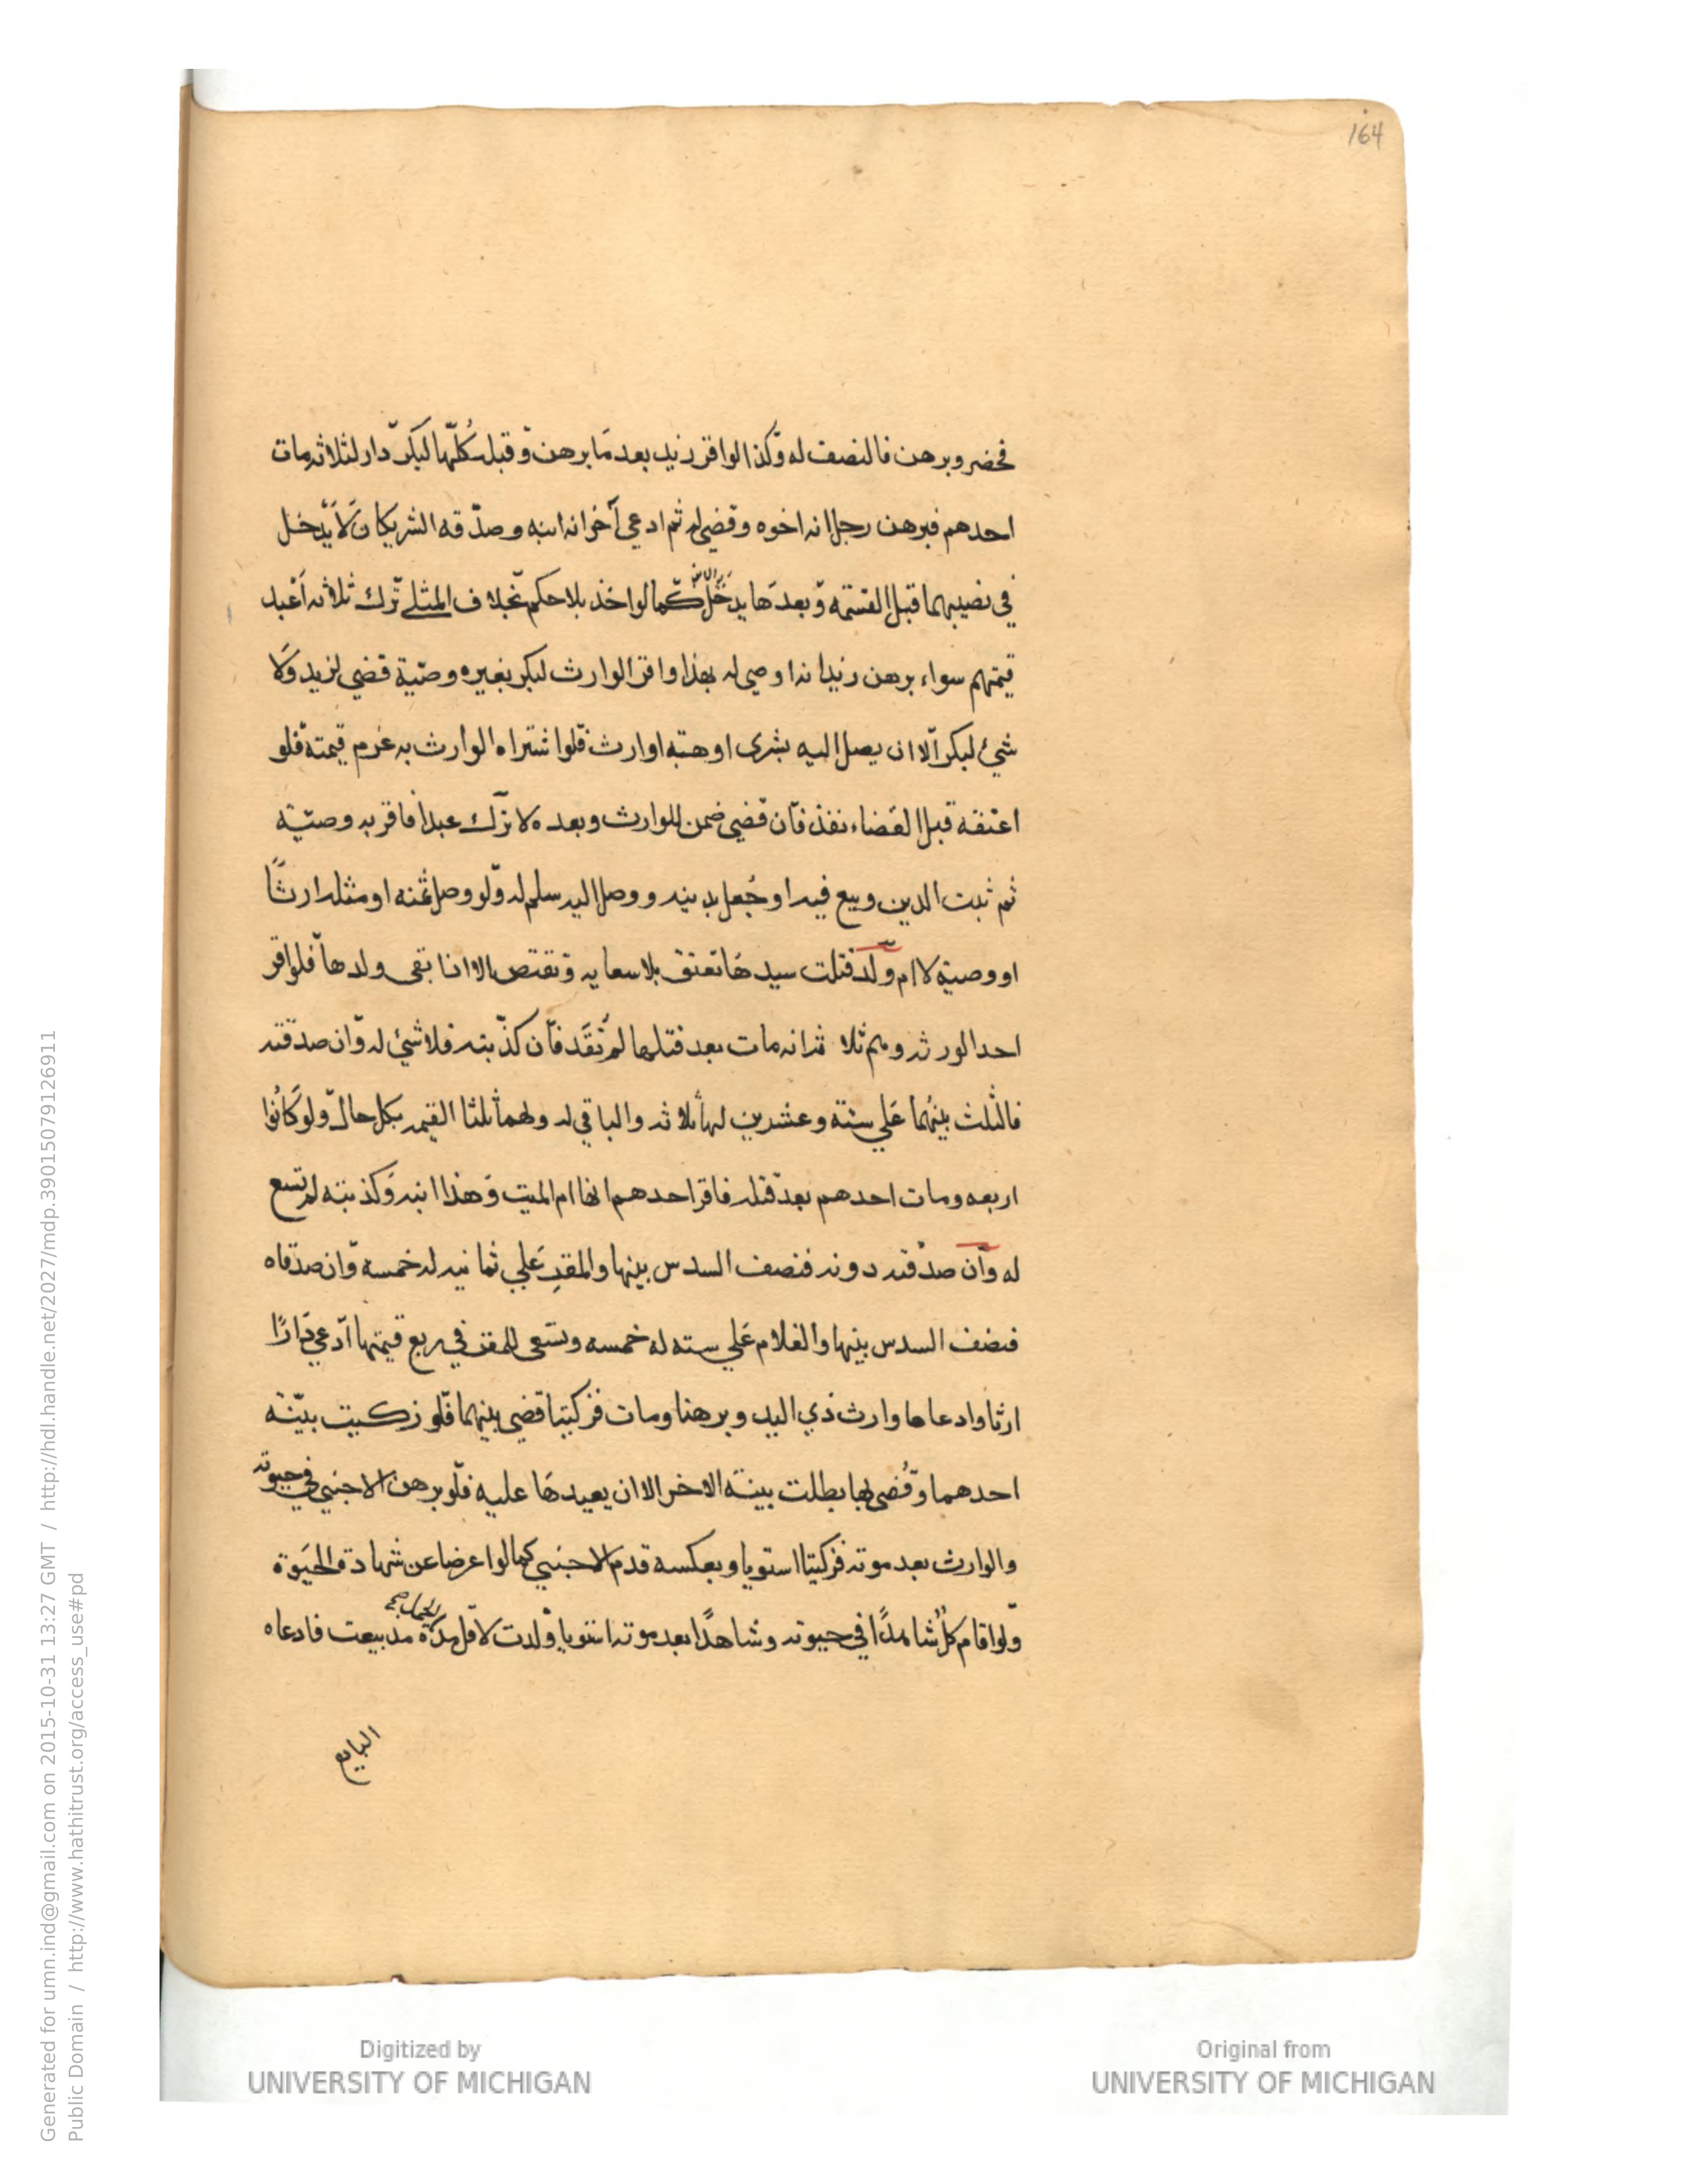 164
فحضر وبرهن فالنصف له وكذا لو اقر زيد بعد ما برهن وقبل كلها لبكر دار لثلاثة مات
احدهم فبرهن رجل انه اخوه وقضى له ثم ادعى آخر انه ابنه وصدقه الشريكان لا يدخل
في نصيبهما قبل القسمة وبعدها يدخل كما لو اخذ بلا حكم بخلاف المثلي ترك ثلاثة اعبد
قيمتهم سواء برهن زيد انه اوصى له بهذا واقر الوارث لبكر بغيره وصية قضي لزيد ولا
شئ لبكر الا ان يصل اليه بشرى او هبة او ارث فلو اشتراه الوارث به غرم قيمته فلو
اعتقه قبل القضاء نفذ فان قضي ضمن للوارث وبعده لا ترك عبدا فاقر به وصية
ثم ثبت الدين وبيع فيه او جعل بدينه ووصل اليه سلم له ولو وصل ثمنه او مثله ارثا
او وصية لا ام ولد قتلت سيدها تعتق بلا سعاية وتقتص الا انا بقى ولدها فلو اقر
احد الورثة وهم ثلاثة انه مات بعد قتلها لم تقد فان كذبته فلا شئ له وان صدقته
فالثلث بينهما على ستة وعشرين لها ثلاثة والباقي له ولهما ثلثا القيمة بكل حال ولو كانوا
اربعه ومات احدهم بعد قتله فاقر احدهم انها ام الميت وهذا ابنه وكذبته لم تسع
له وان صدقته دونه فنصف السدس بينها والمقر على ثمانية له خمسه وان صدقاه
فنصف السدس بينها والغلام على سته له خمسه وتسعى للمقر في ربع قيمتها ادعى دارا
ارثا وادعاها وارث ذي اليد وبرهنا ومات فزكيتا قضي بينهما فلو زكيت بينة
احدهما وقضى بها بطلت بينة الاخر الا ان يعيدها عليه فلو برهن الاجنبي في حيوته
والوارث بعد موته فزكيتا استويا وبعكسه قدم الاجنبي كما لو اعرضا عن شهادة الحيوة
ولو اقام كل شاهدا في حيوته وشاهدا بعد موته استويا ولدت لاقل مدة الحمل صح مذ بيعت فادعاه
البايع
Generated for umn.ind@gmail.com on 2015-10-31 13:27 GMT / http://hdl.handle.net/2027/mdp.39015079126911
Public Domain / http://www.hathitrust.org/access_use#pd
Digitized by
UNIVERSITY OF MICHIGAN
Original from
UNIVERSITY OF MICHIGAN